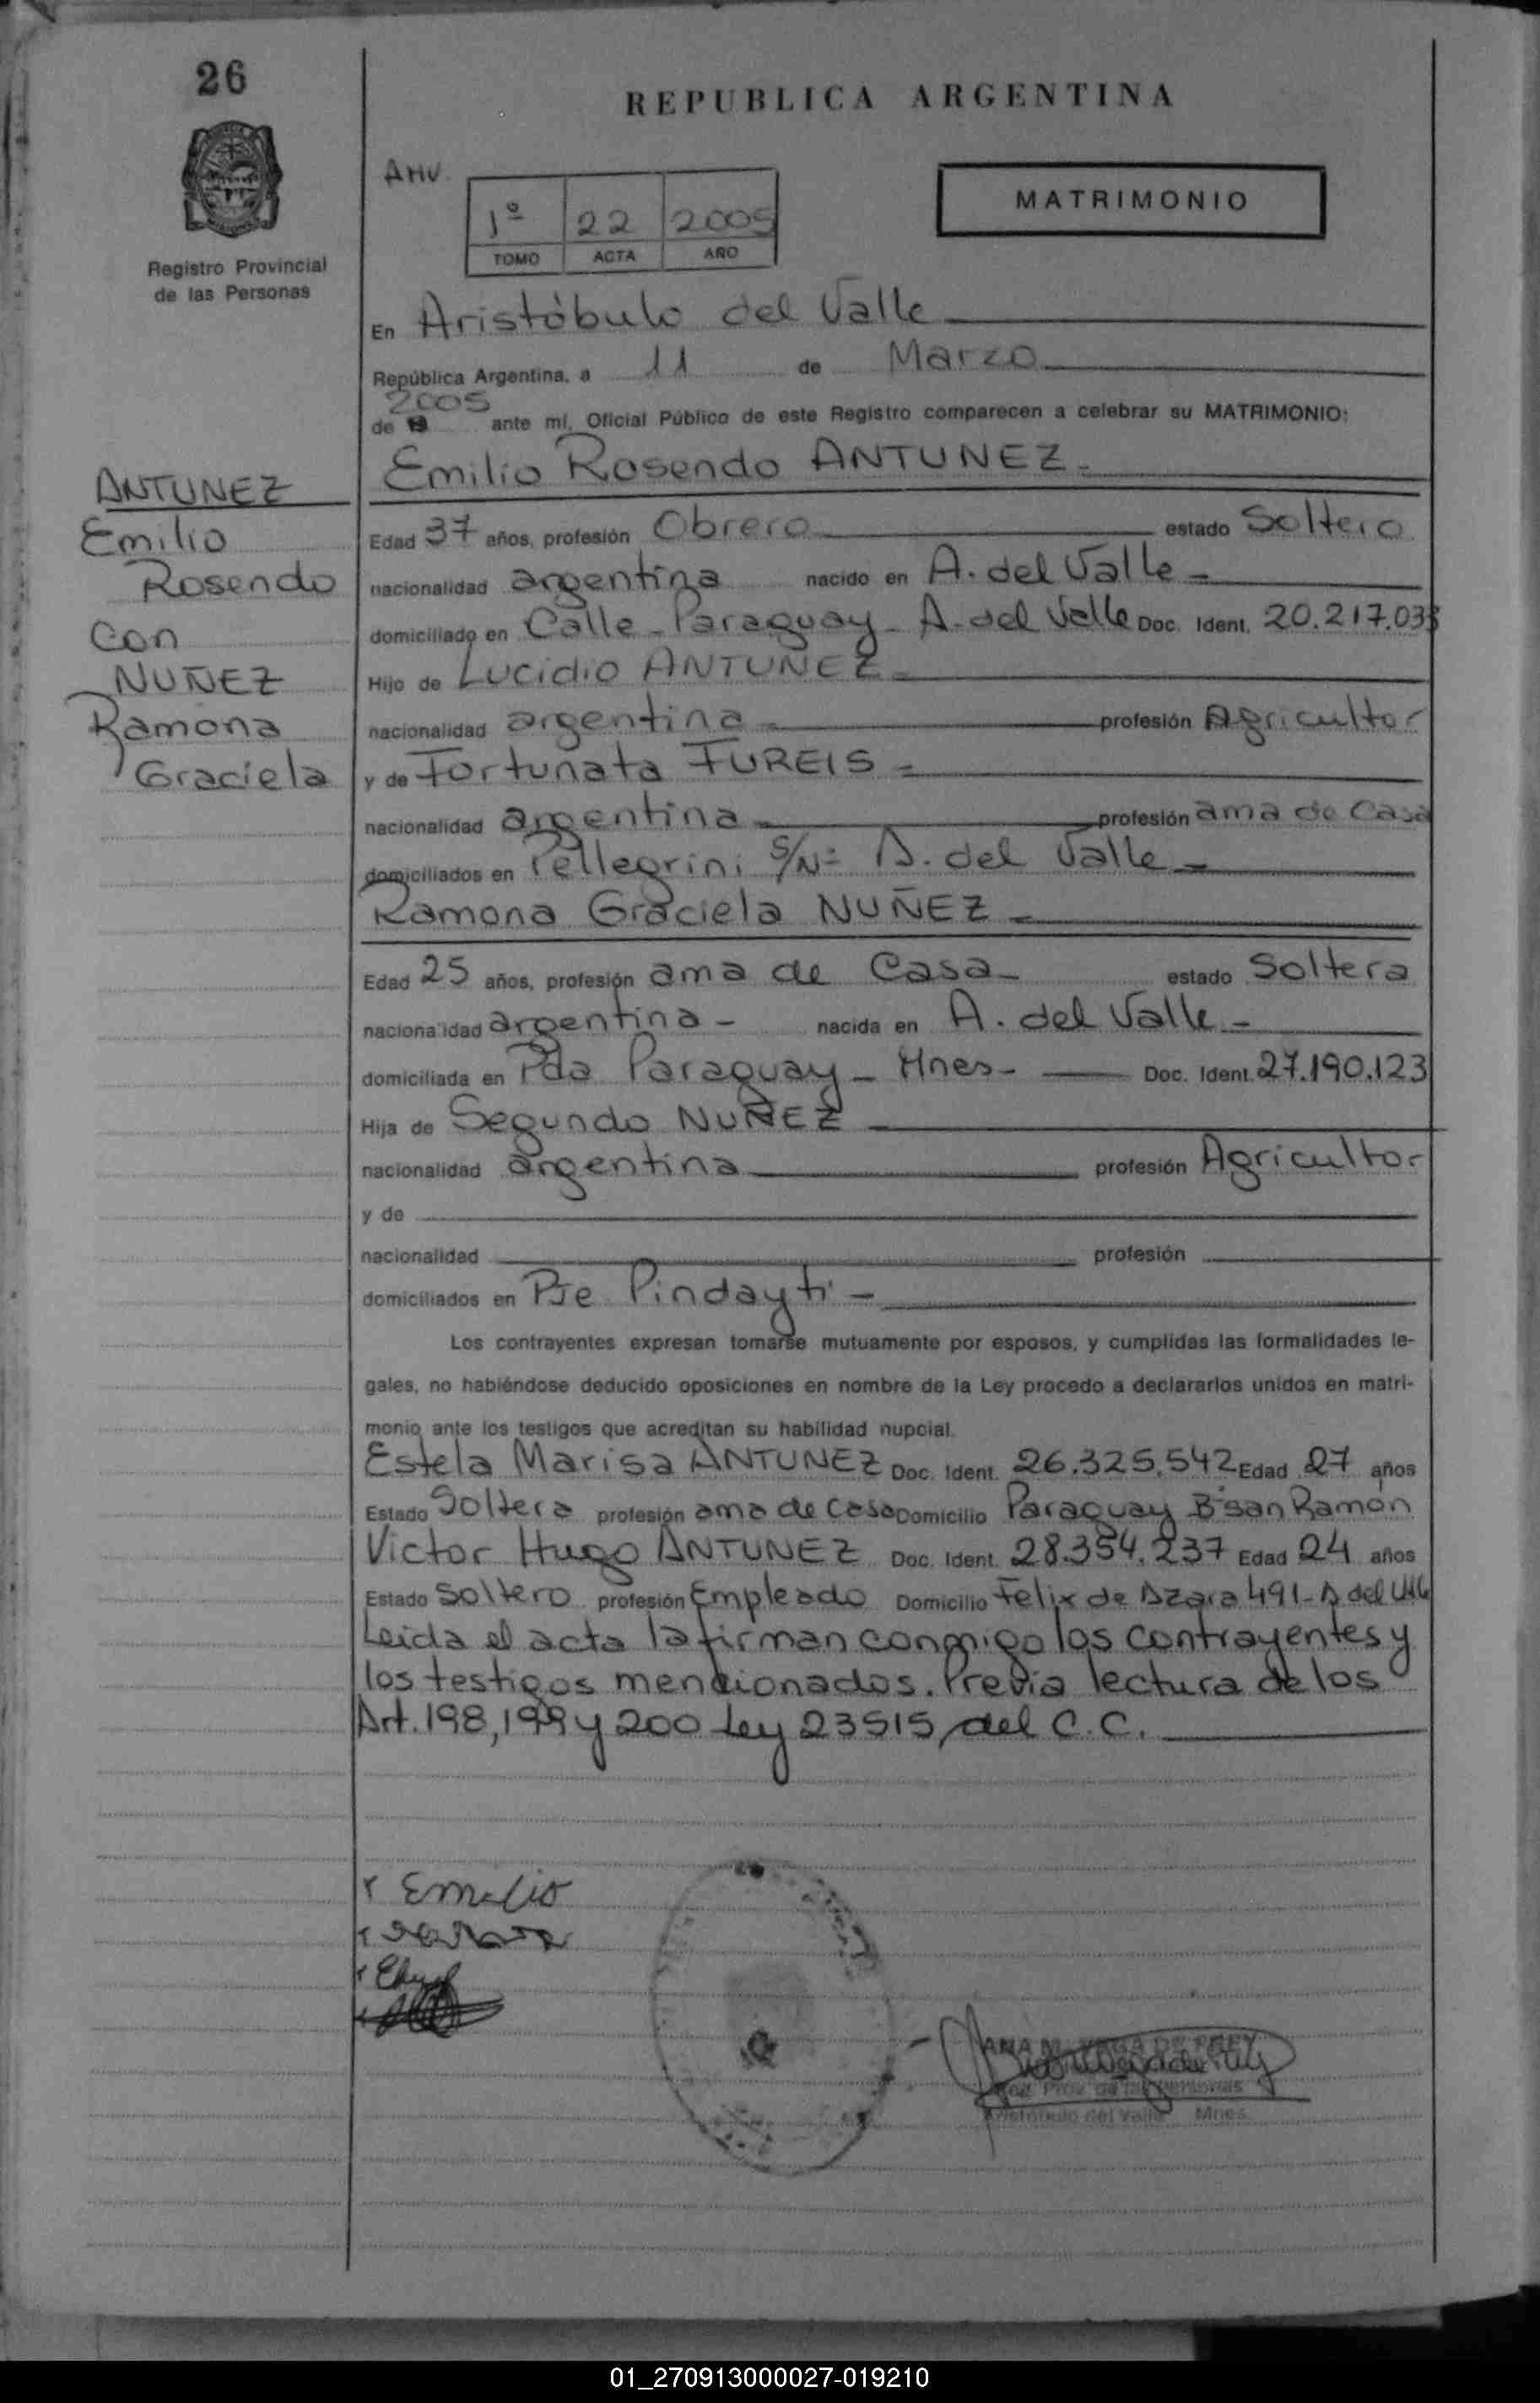 26
REPUBLICA ARGENTINA
Registro Provincial
de las Personas
AHV.
1º 22 2005
TOMO ACTA AÑO
MATRIMONIO
En Aristóbulo del Valle
República Argentina, a 11 de Marzo
2005
de 19 ante mí, Oficial Público de este Registro comparecen a celebrar su MATRIMONIO:
Emilio Rosendo ANTUNEZ
ANTUNEZ
Emilio
Rosendo
con
NUÑEZ
Ramona
Graciela
Edad 37 años, profesión Obrero estado Soltero
nacionalidad argentina nacido en A. del Valle
domiciliado en Calle Paraguay - A. del Valle Doc. Ident. 20.217.033
Hijo de Lucidio ANTUNEZ
nacionalidad argentina profesión Agricultor
y de Fortunata FUREIS
nacionalidad argentina profesión ama de casa
domiciliados en Pellegrini S/Nº A. del Valle
Ramona Graciela NUÑEZ
Edad 25 años, profesión ama de Casa estado Soltera
nacionalidad argentina nacida en A. del Valle
domiciliada en Pda Paraguay - Mnes - Doc. Ident. 27.190.123
Hija de Segundo NUÑEZ
nacionalidad argentina profesión Agricultor
y de
nacionalidad profesión
domiciliados en Pje Pindayti
Los contrayentes expresan tomarse mutuamente por esposos, y cumplidas las formalidades le-
gales, no habiéndose deducido oposiciones en nombre de la Ley procedo a declararlos unidos en matri-
monio ante los testigos que acreditan su habilidad nupcial.
Estela Marisa ANTUNEZ Doc. Ident. 26.325.542 Edad 27 años
Estado Soltera profesión ama de casa Domicilio Paraguay Bº San Ramón
Victor Hugo ANTUNEZ Doc. Ident. 28.354.237 Edad 24 años
Estado Soltero profesión Empleado Domicilio Felix de Azara 491 - A del Valle
Leida el acta la firman conmigo los contrayentes y
los testigos mencionados. Previa lectura de los
Art. 198, 199 y 200 Ley 23515, del C.C.
Emilio
ANA M. VEGA DE FREY
Reg. Prov. de las Personas
Aristóbulo del Valle Mnes.
01_270913000027-019210